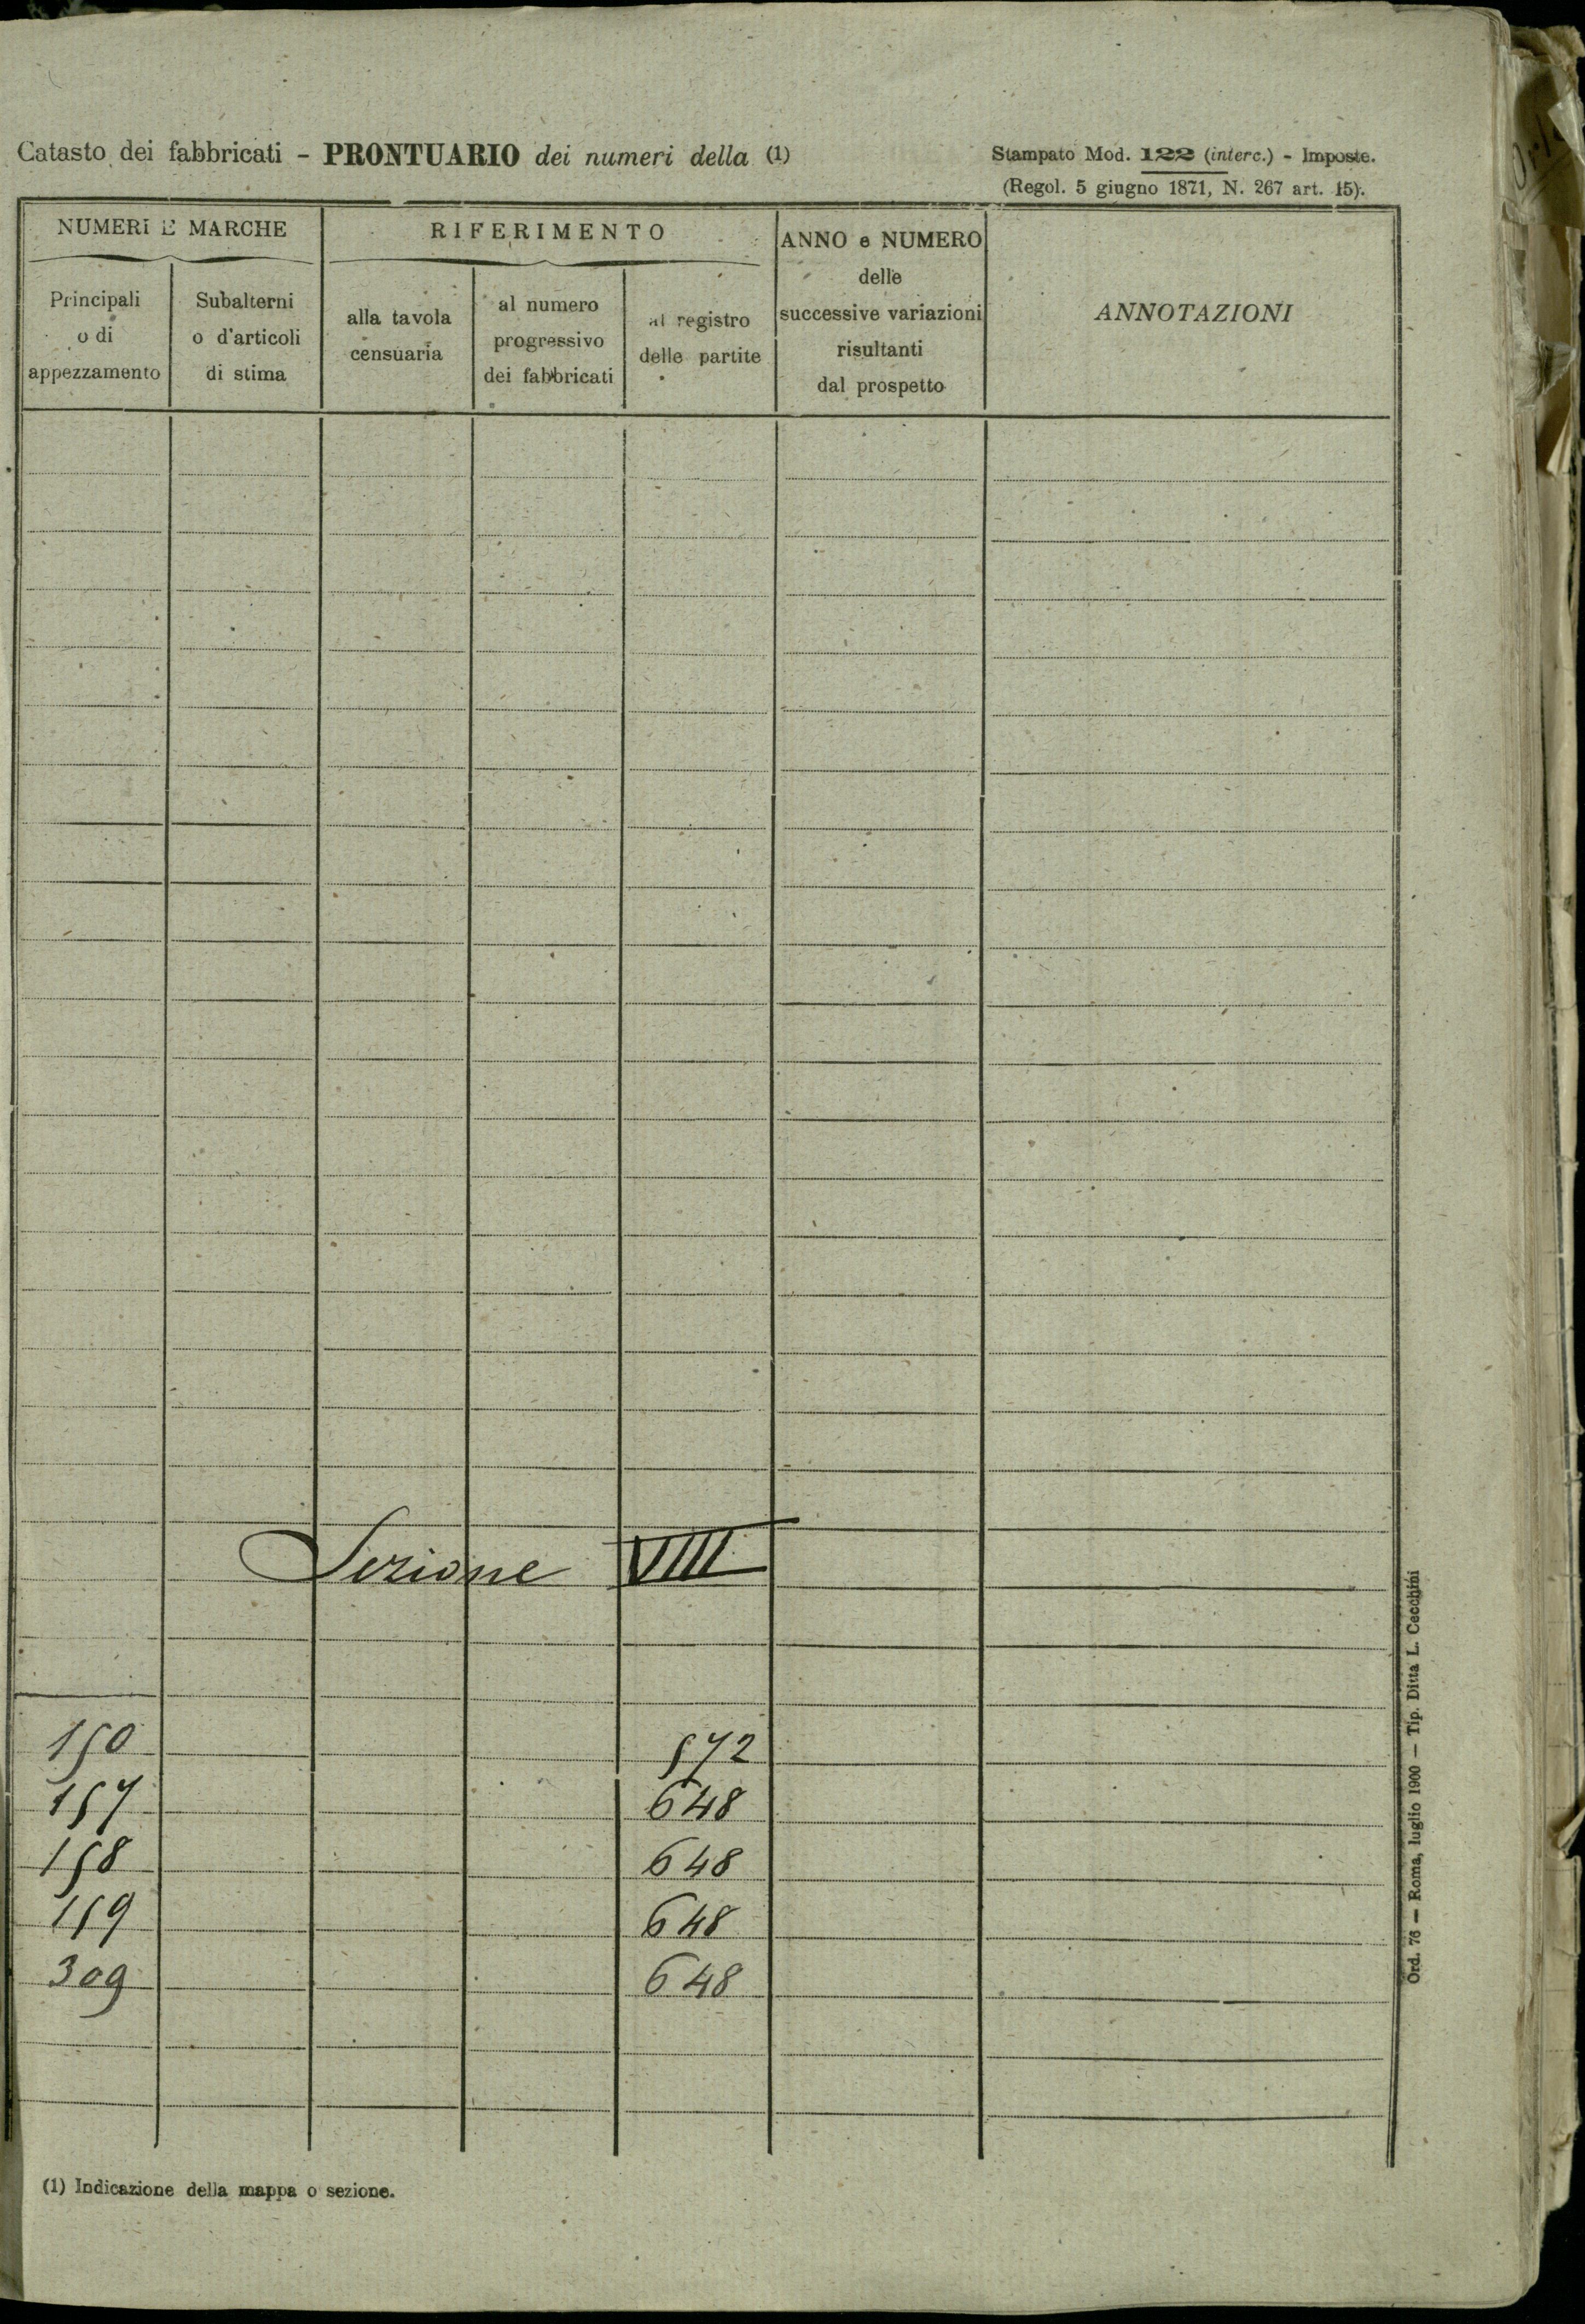 Catasto dei fabbricati - PRONTUARIO dei numeri della (1)
Stampato Mod. 122 (interc.) - Imposte.
(Regol. 5 giugno 1871, N. 267 art. 15).
NUMERI E MARCHE
Principali o di appezzamento
Subalterni o d'articoli di stima
RIFERIMENTO
alla tavola censuaria
al numero progressivo dei fabbricati
al registro delle partite
ANNO e NUMERO delle successive variazioni risultanti dal prospetto
ANNOTAZIONI
Sezione VIIII
150 572
157 648
158 648
159 648
309 648
(1) Indicazione della mappa o sezione.
Ord. 76 — Roma, luglio 1900 — Tip. Ditta L. Cecchini